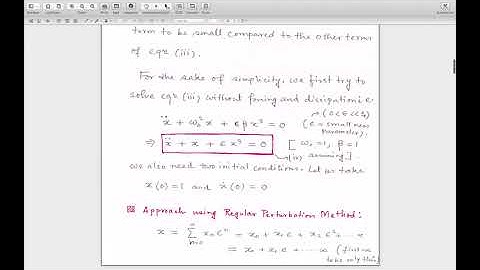 term to be small compared to the other terms
of eqn (iii).
For the sake of simplicity, we first try to
solve eqn (iii) without forcing and dissipation i.e.
ẍ + ω₀²x + εβx³ = 0
(0<ε<<1)
(ε = small parameter)
⇒ ẍ + x + εx³ = 0
[ω₀=1, β=1
(iv) assuming]
we also need two initial conditions. Let us take
x(0)=1 and ẋ(0)=0
Approach using Regular Perturbation Method:
x = Σ xₙεⁿ = x₀ + x₁ε + x₂ε² + ··· ∞
n=0
= x₀ + x₁ε + ··· ∞ (first we
take only this)